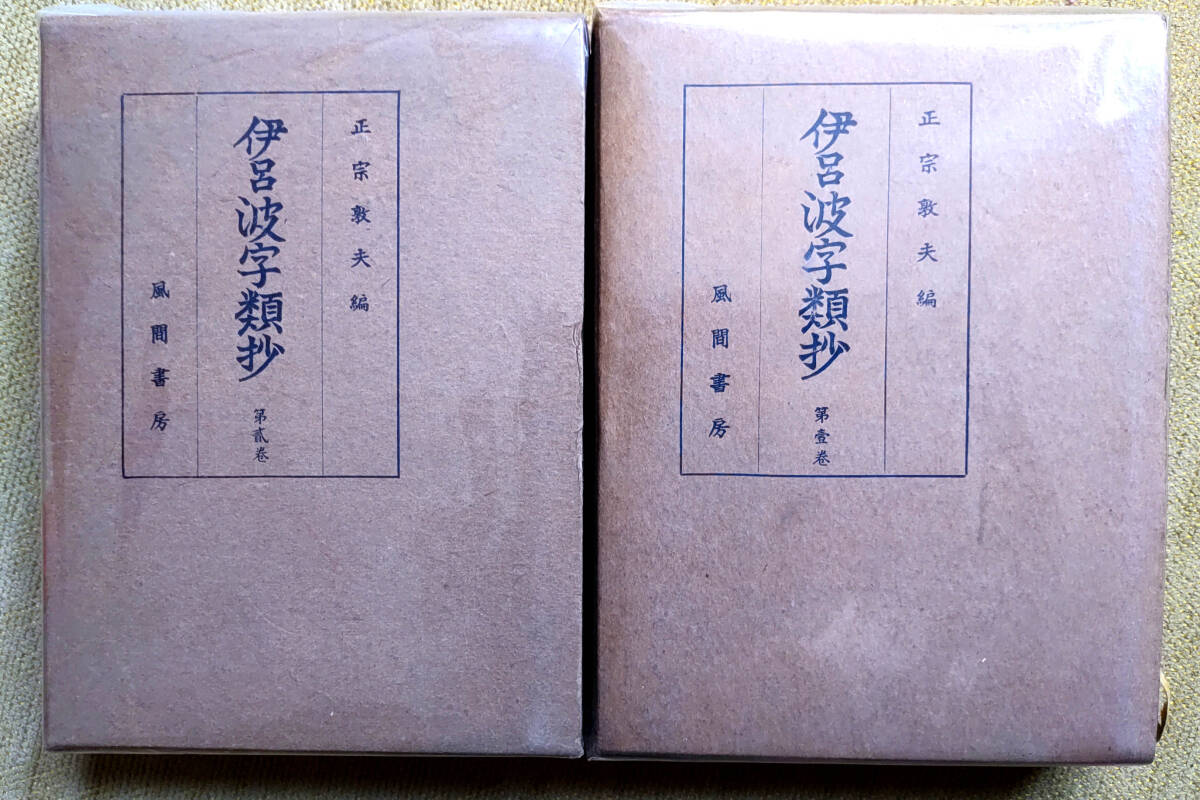 正宗敦夫編
伊呂波字類抄
第壹卷
風間書房
正宗敦夫編
伊呂波字類抄
第貳卷
風間書房